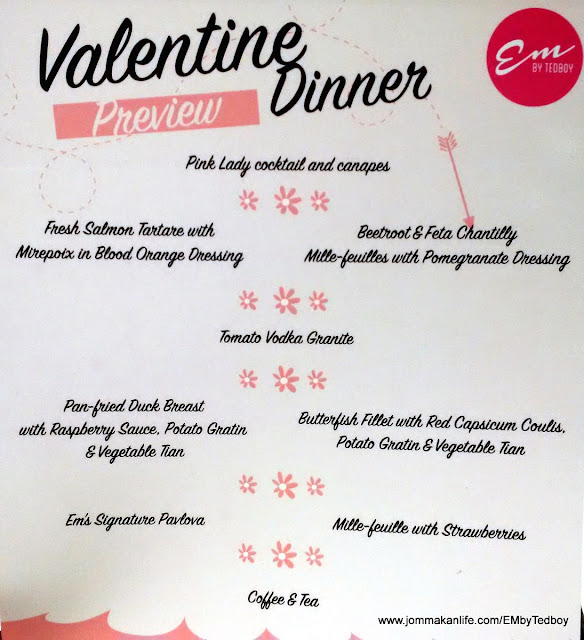 Valentine
Dinner
Preview
Em
BY TEDBOY
Pink Lady cocktail and canapes
Fresh Salmon Tartare with
Mirepoix in Blood Orange Dressing
Beetroot & Feta Chantilly
Mille-feuilles with Pomegranate Dressing
Tomato Vodka Granite
Pan-fried Duck Breast
with Raspberry Sauce, Potato Gratin
& Vegetable Tian
Butterfish Fillet with Red Capsicum Coulis,
Potato Gratin & Vegetable Tian
Em's Signature Pavlova
Mille-feuille with Strawberries
Coffee & Tea
www.jommakanlife.com/EMbyTedboy